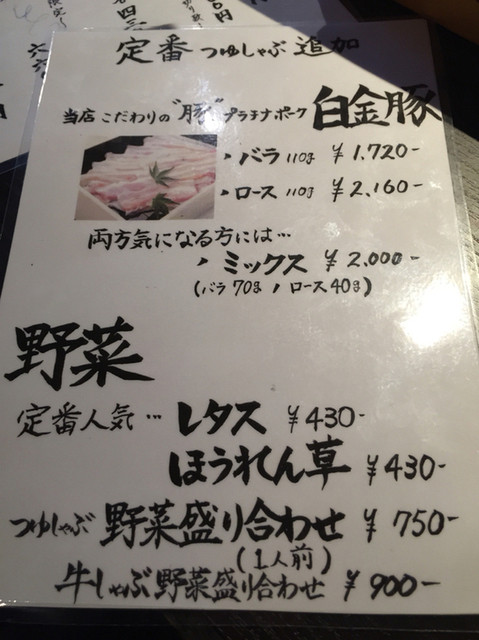 定番 つゆしゃぶ 追加
当店 こだわりの "豚" プラチナポーク 白金豚
・バラ 110g ¥1.720-
・ロース 110g ¥2.160-
両方気になる方には…
・ミックス ¥2.000-
(バラ 70g / ロース 40g)
野菜
定番人気… レタス ¥430-
ほうれん草 ¥430-
つゆしゃぶ 野菜盛り合わせ ¥750-
(1人前)
牛しゃぶ野菜盛り合わせ ¥900-